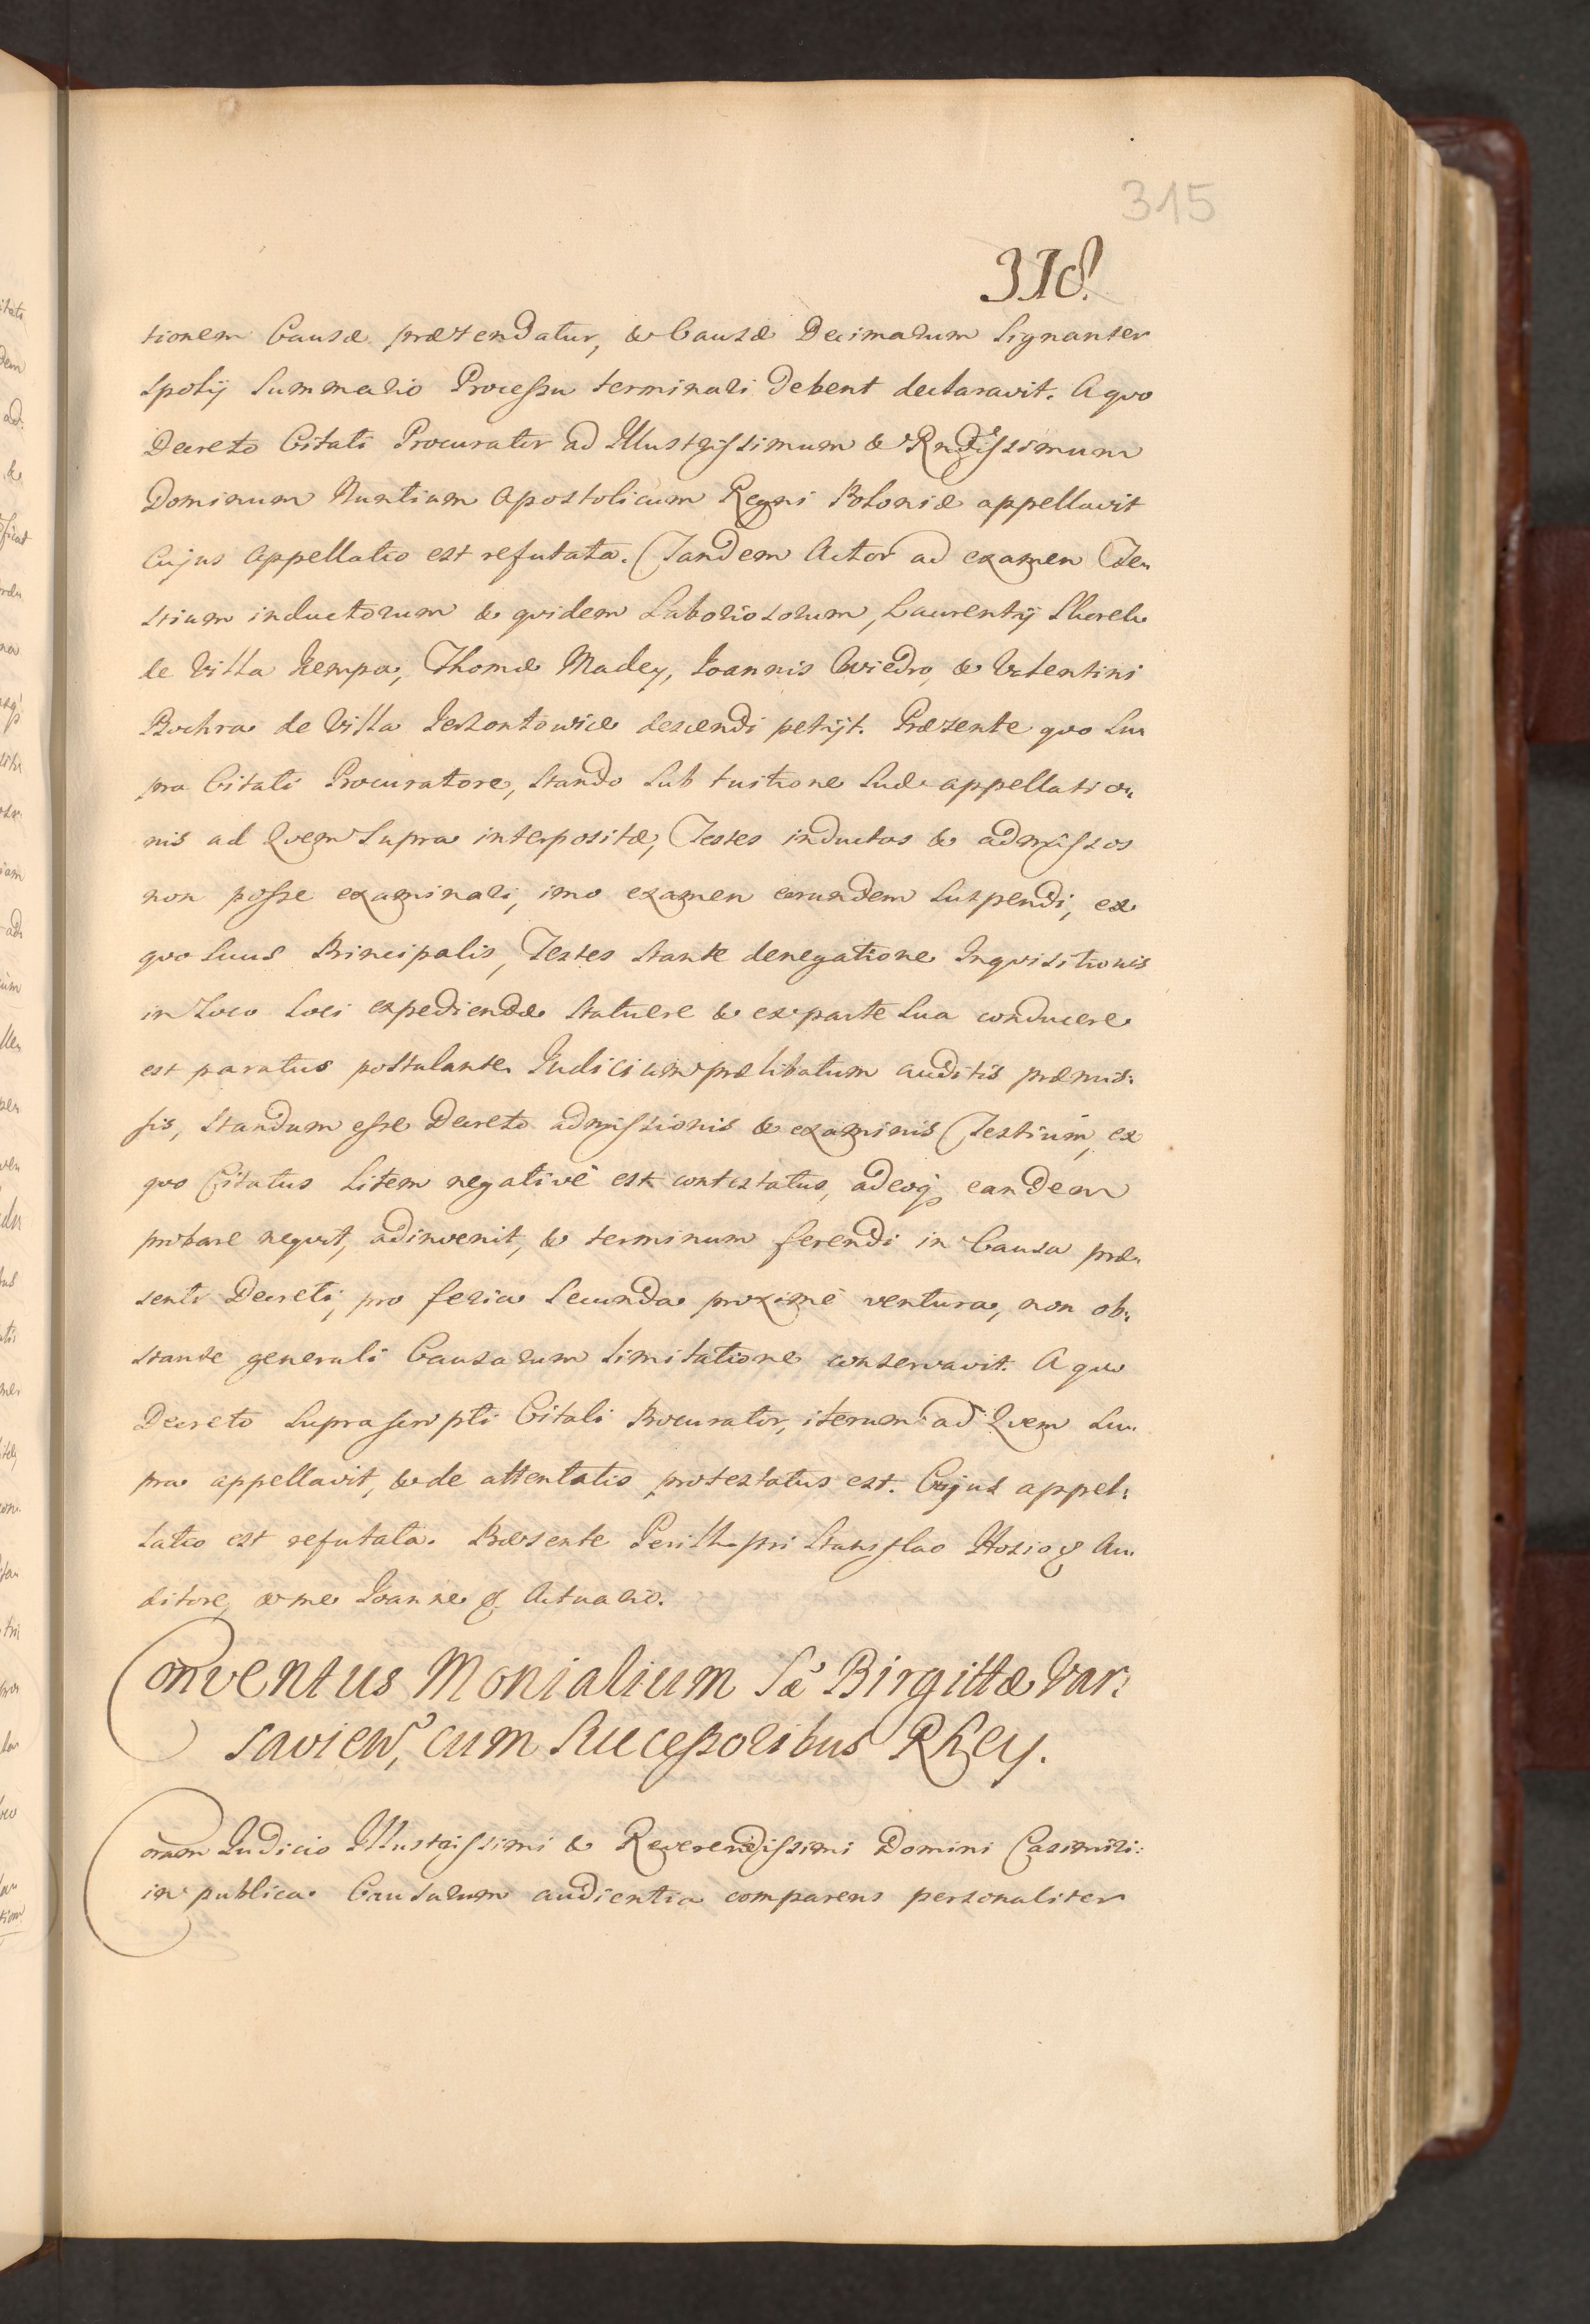 315
318.
tionem Causæ prætendatur, & Causæ Decimarum Signanter
Spolij Summario Processu terminari debent declaravit. A quo
Decreto Citati Procurator ad Illustrissimum & Rndissimum
Dominum Nuntium Apostolicum Regni Poloniæ appellavit
Cujus Appellatio est refutata. Tandem Actor ad examen Te„
stium inductorum & quidem Laboriosorum, Laurentij
de Villa Kempa, Thomæ Madey, Joannis & Valentini
de Villa descendi petijt. Præsente quo Su„
pra Citati Procuratore, Stando Sub tuitione Suæ appellatio„
nis ad Quem Supra interpositæ, Testes inductos & admissos
non posse examinari, imo examen eorundem Suspendi, ex
quo Suus Principalis, Testes Stante denegatione Inquisitionis
in Loco Loci expediendæ Statuere & ex parte Sua conducere
est paratus postulante. Judicium prælibatum auditis præmis:
sis, Standum esse Decreto admissionis & examinis Testium, ex
quo Citatus Litem negativè est contestatus, adeoq, eandem
probare nequit, adinvenit, & terminum ferendi in Causa præ„
senti Decreti, pro feria Secunda proximè ventura, non ob„
stante generali Causarum limitatione conservavit. A quo
Decreto Suprascripti Citati Procurator, iterum ad Quem Su„
pra appellavit, & de attentatis protestatus est. Cujus appel:
latio est refutata. Præsente Perill. Stanislao Hosio & Au„
ditore, & me Joanne & Actuario.
Conventus Monialium Sæ Birgittæ Var:
saviens, cum Successoribus Rhey.
Coram Judicio Illustrissimi & Reverendissimi Domini Casimiri:
in publica Causarum audientia comparens personaliter